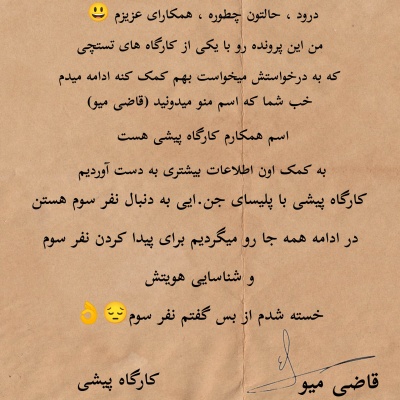 درود ، حالتون چطوره ، همکارای عزیزم 😃
من این پرونده رو با یکی از کارگاه های تستچی
که به درخواستش میخواست بهم کمک کنه ادامه میدم
خب شما که اسم منو میدونید (قاضی میو)
اسم همکارم کارگاه پیشی هست
به کمک اون اطلاعات بیشتری به دست آوردیم
کارگاه پیشی با پلیسای جن.ایی به دنبال نفر سوم هستن
در ادامه همه جا رو میگردیم برای پیدا کردن نفر سوم
و شناسایی هویتش
خسته شدم از بس گفتم نفر سوم😔👌
قاضی میو
کارگاه پیشی